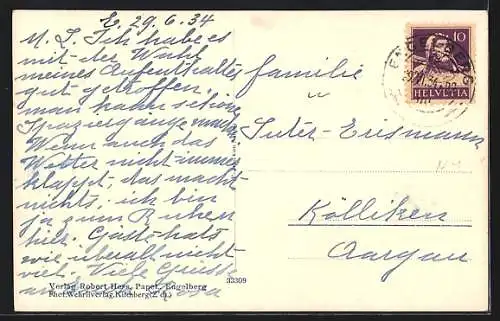 E. 29.6.34
M. L. Ich habe es
mit der Wahl
meines Aufenthaltes
gut getroffen,
man kann schöne
Spaziergänge machen
Wenn auch das
Wetter nicht immer
klappt, das macht
nichts, ich bin
ja zum Ruhen
hier. Gäste hats
wie überall nicht
viel. Viele Grüsse
Rosa
Familie
Suter-Erismann
Kölliken
Aargau
10
HELVETIA
Verlag Robert Hess, Papet., Engelberg
Phot. Wehrliverlag, Kilchberg (Zch.)
33309